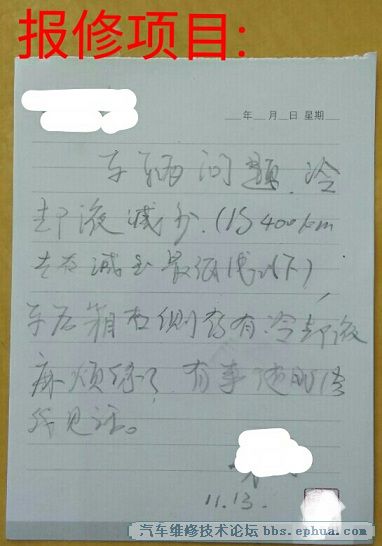 报修项目:
年 月 日 星期
车辆问题、冷
却液减少.(1500km
左右减至最低线以下)
车后箱右侧存有冷却液
麻烦
有事随时
电话。
11.13.
汽车维修技术论坛 bbs.ephua.com